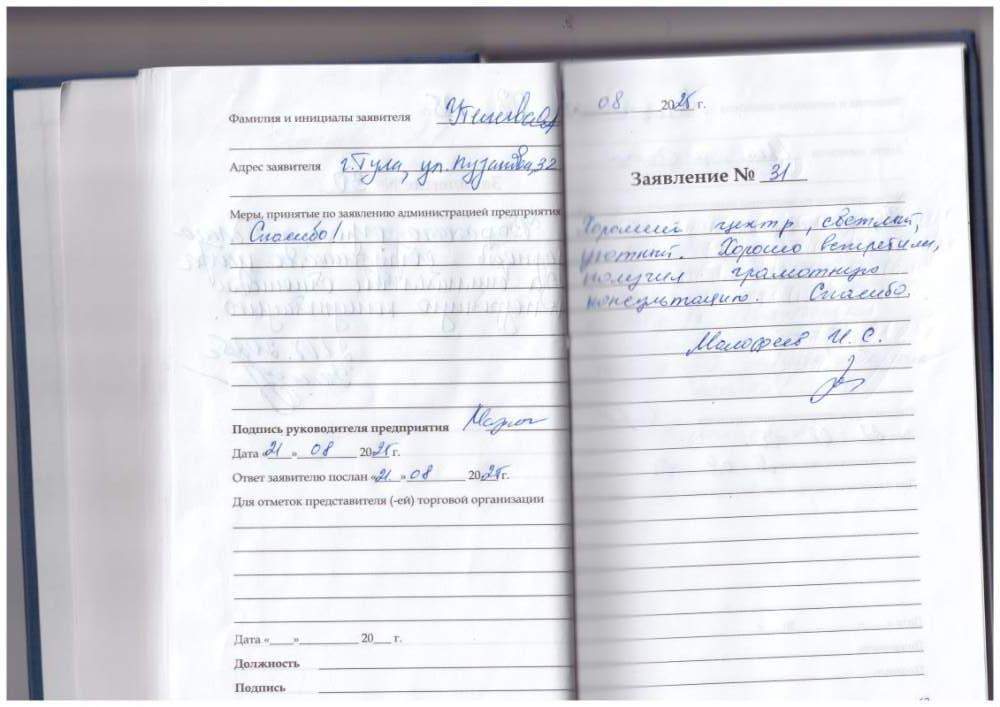 Фамилия и инициалы заявителя
Адрес заявителя г. Тула, ул. Пузакова, 32
Меры, принятые по заявлению администрацией предприятия
Спасибо!
Подпись руководителя предприятия
Дата «21» 08 2025 г.
Ответ заявителю послан «21» 08 2025 г.
Для отметок представителя (-ей) торговой организации
Дата «___»__________ 20___ г.
Должность
Подпись
08 2025 г.
Заявление № 31
Хороший центр, светлый,
уютный. Хорошо встретили,
получил грамотную
консультацию. Спасибо.
Малофеев И. С.